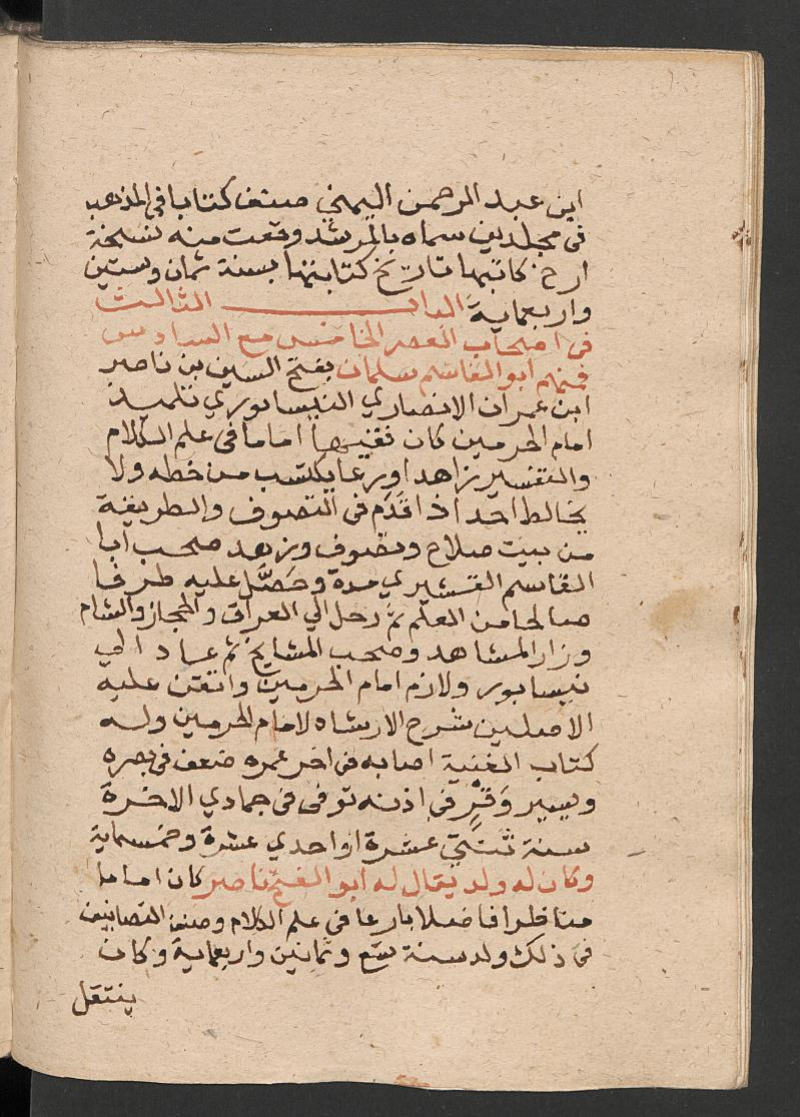 ابن عبد الرحمن اليمني صنف كتابا في المذهب
في مجلدين سماه بالمرشد وقعت منه نسخة
ارخ كاتبها تاريخ كتابتها بسنة ثمان وستين
واربعماية الباب الثالث
في اصحاب العصر الخامس مع السادس
فمنهم ابو القاسم سلمان بفتح السين بن ناصر
ابن عمران الانصاري النيسابوري تلميذ
امام الحرمين كان فقيها اماما في علم الكلام
والتفسير زاهدا ورعا يكتسب من خطه ولا
يخالط احدا ذا قدم في التصوف والطريقة
من بيت صلاح وتصوف وزهد صحب ابا
القاسم القشيري مدة وحصّل عليه طرفا
صالحا من العلم ثم رحل الي العراق والحجاز والشام
وزار المشاهد وصحب المشايخ ثم عاد الي
نيسابور ولازم امام الحرمين واتقن عليه
الاصلين شرح الارشاد لامام الحرمين وله
كتاب الغنية اصابه في اخر عمره ضعف في بصره
ويسير وَقْرٍ في اذنه توفي في جمادي الاخرة
سنة ثنتي عشرة او احدي عشرة وخمسماية
وكان له ولد يقال له ابو الفتح ناصر كان اماما
مناظرا فاضلا بارعا في علم الكلام وصنف التصانيف
في ذلك ولد سنة تسع وثمانين واربعماية وكان
ينتقل